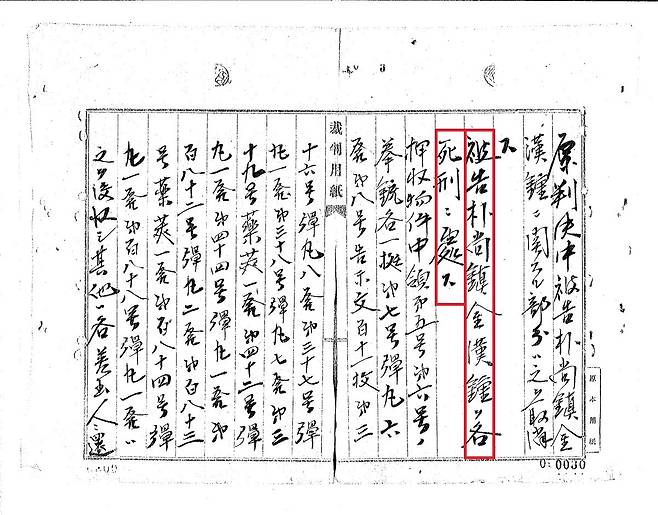 原判決中被告朴尚鎮金
漢鍾ニ関スル部分ハ之ヲ取消
ス
被告朴尚鎮金漢鍾ヲ各
死刑ニ處ス
押収物件中領第五号第六号ノ
拳銃各一挺第七号彈丸六
箇第八号告示文百十一枚第三
裁判用紙
十六号彈丸八箇第三十七号彈
丸一箇第三十八号彈丸七箇第三
十九号薬莢一箇第四十二号彈
丸一箇第四十四号彈丸一箇第
百八十二号彈丸二箇第百八十三
号薬莢一箇第百八十四号彈
丸一箇第百八十八号彈丸一箇ハ
之ヲ没収シ其他ハ各差出人ニ還
0030